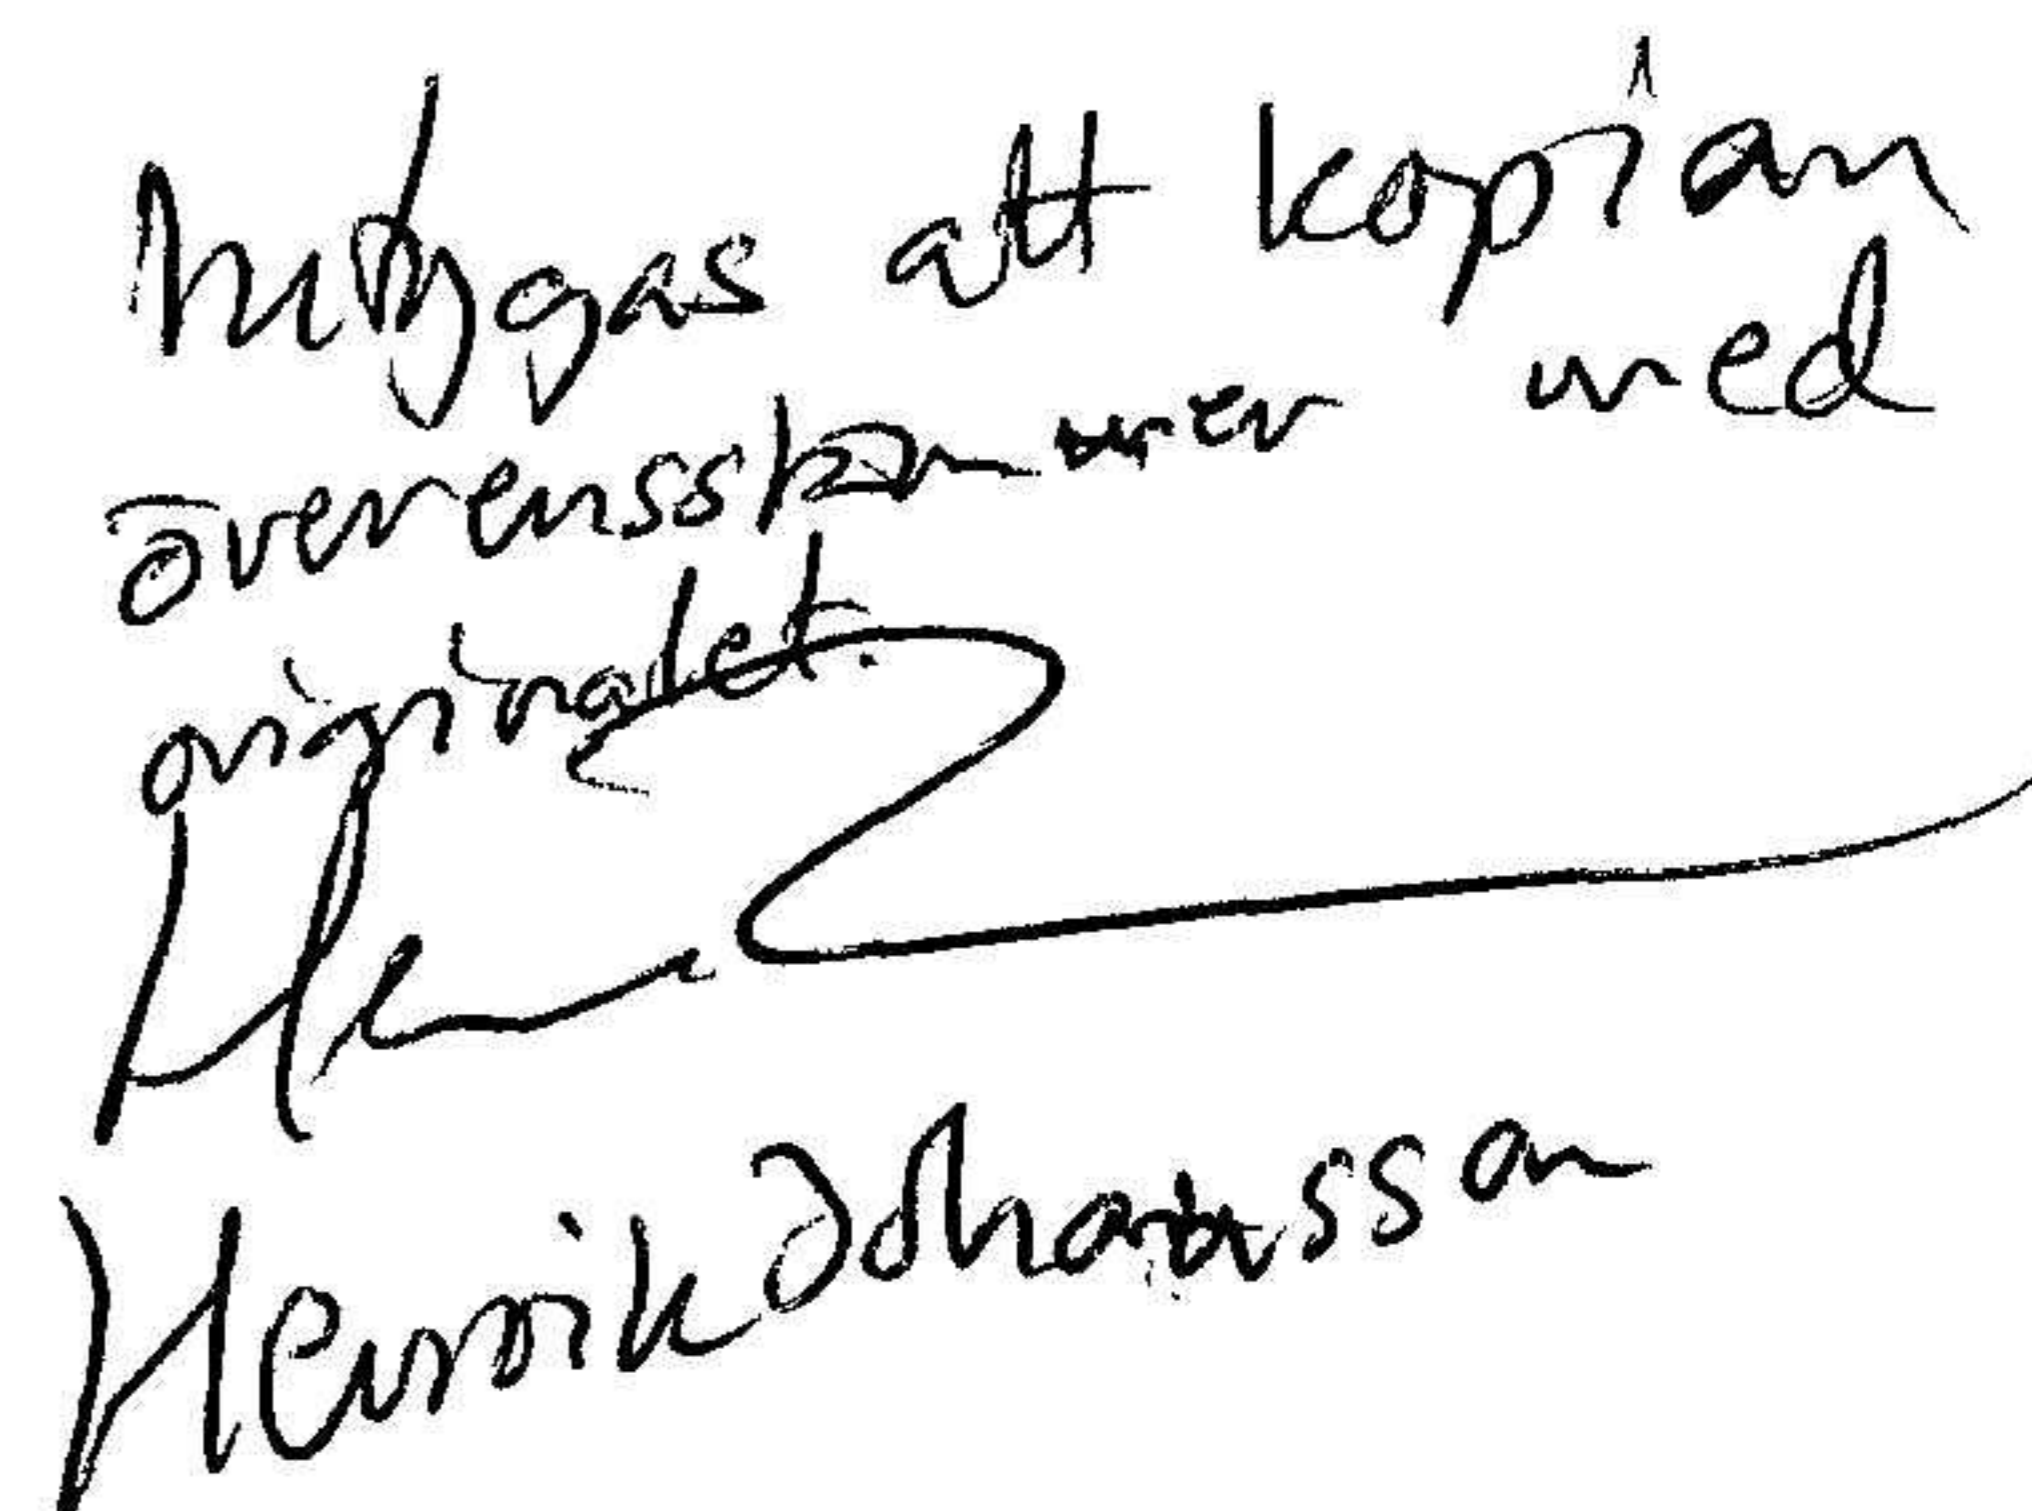 Intygas att kopian
överensskommer med
originalet.
Henrik Johansson